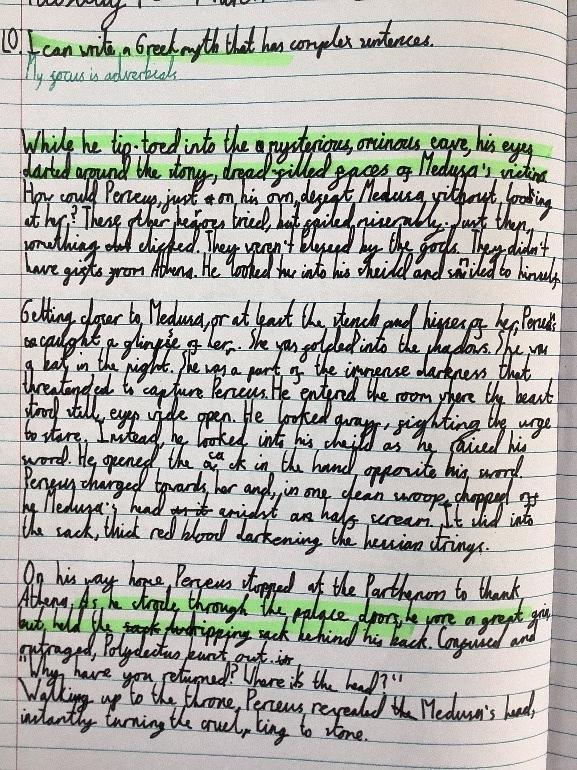 LO. I can write a Greek myth that has complex sentences.
My focus is adverbials
While he tip-toed into the mysterious, ominous cave, his eyes
darted around the stony, dread-filled faces of Medusa's victims
How could Perseus, just on his own, defeat Medusa without looking
at her? These other heroes tried, but failed miserably. Just then,
something clicked. They weren't blessed by the gods. They didn't
have gifts from Athena. He looked into his sheild and smiled to himself
Getting closer to Medusa, or at least the stench and hisses of her, Perseus
caught a glimpse of her. She was folded into the shadows. She was
a bat in the night. She was a part of the immense darkness that
threatended to capture Perseus. He entered the room where the beast
stood still, eyes wide open. He looked away, fighting the urge
to stare. Instead, he looked into his sheild as he raised his
sword. He opened the sack in the hand opposite his sword.
Perseus charged towards her and, in one clean swoop, chopped off
Medusa's head amidst an half scream. It slid into
the sack, thick red blood darkening the hessian strings.
On his way home, Perseus stopped at the Parthenon to thank
Athena. As he strode through the palace doors, he wore a great grin
but, held the dripping sack behind his back. Confused and
outraged, Polydectus burst out
"Why have you returned? Where is the head?"
Walking up to the throne, Perseus revealed the Medusa's head,
instantly turning the cruel, king to stone.